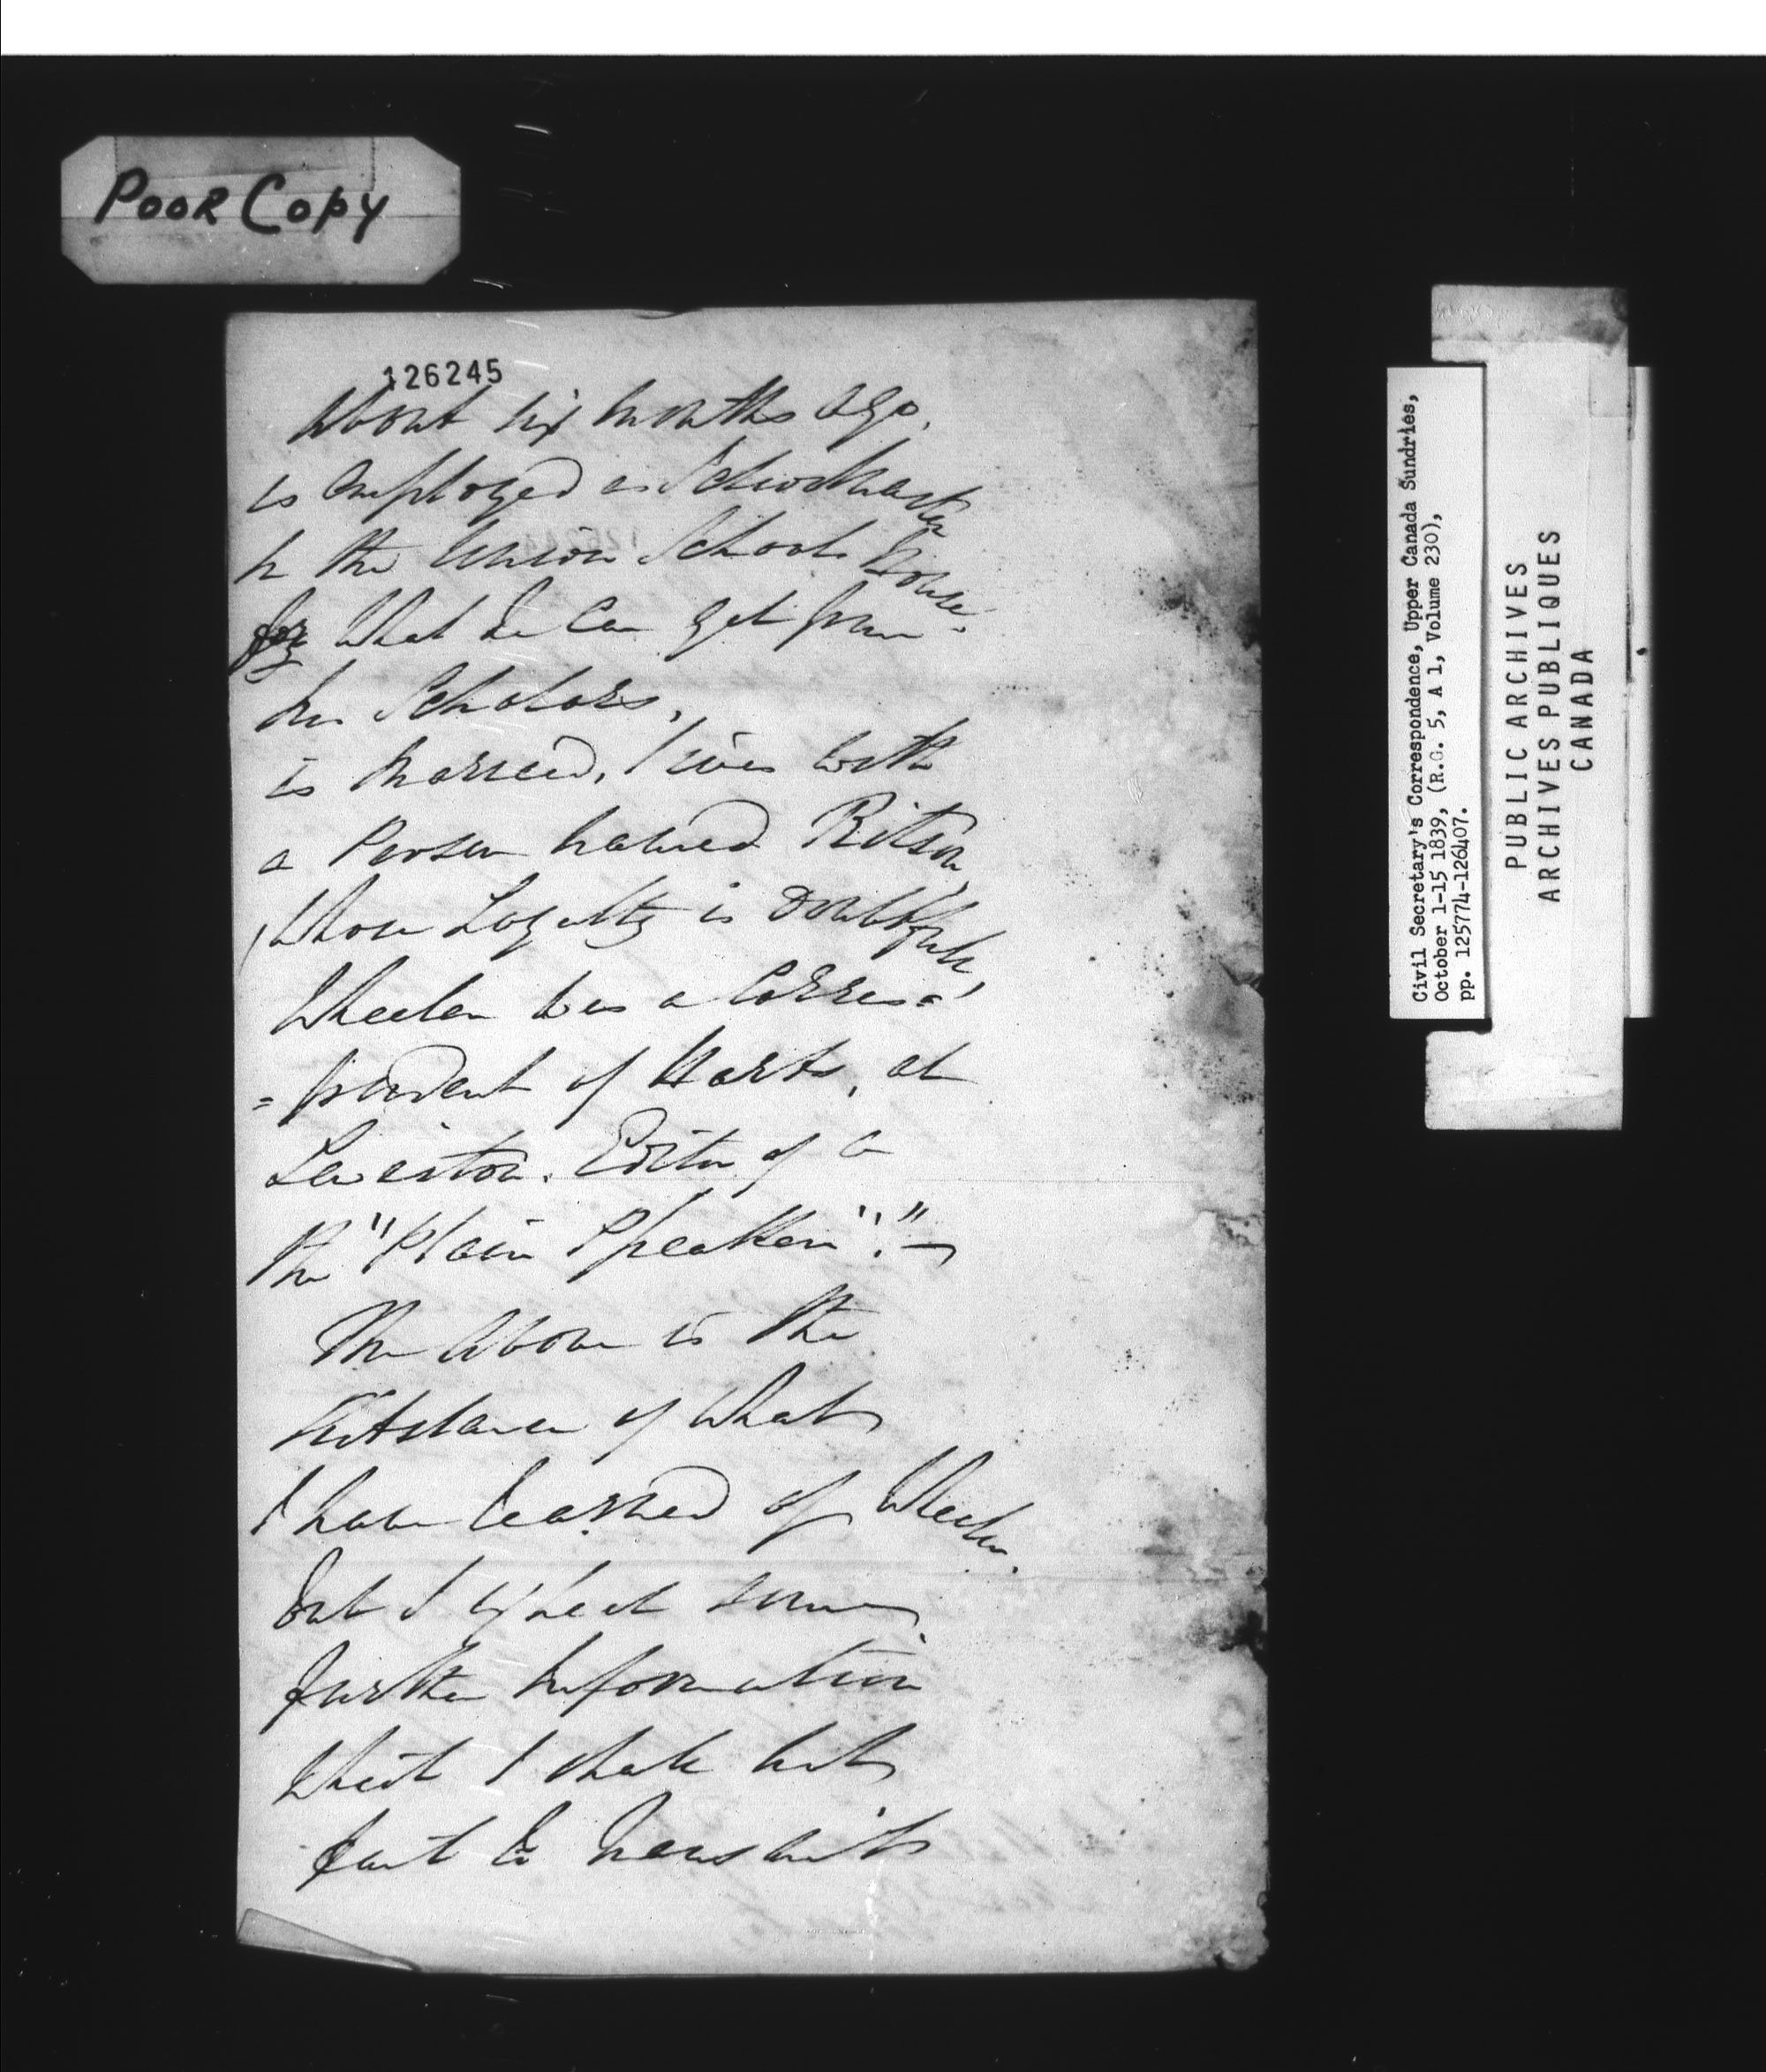 Poor Copy
126245
About six months ago,
is employed as Schoolmaster
in the Union School House.
for what he can get from
his Scholars,
is married, lives with
a Person named Ritson,
whose Loyalty is Doubtfull,
Wheeler was a Corres=
=pondent of Harts, at
Lewiston. Editor of a
the "Plain Speaker".—
The above is the
Substance of what
I have learned of Wheeler.
but I expect some
further information
which I shall not
fail to transmit
Civil Secretary's Correspondence, Upper Canada Sundries,
October 1-15 1839, (R.G. 5, A 1, Volume 230),
pp. 125774-126407.
PUBLIC ARCHIVES
ARCHIVES PUBLIQUES
CANADA